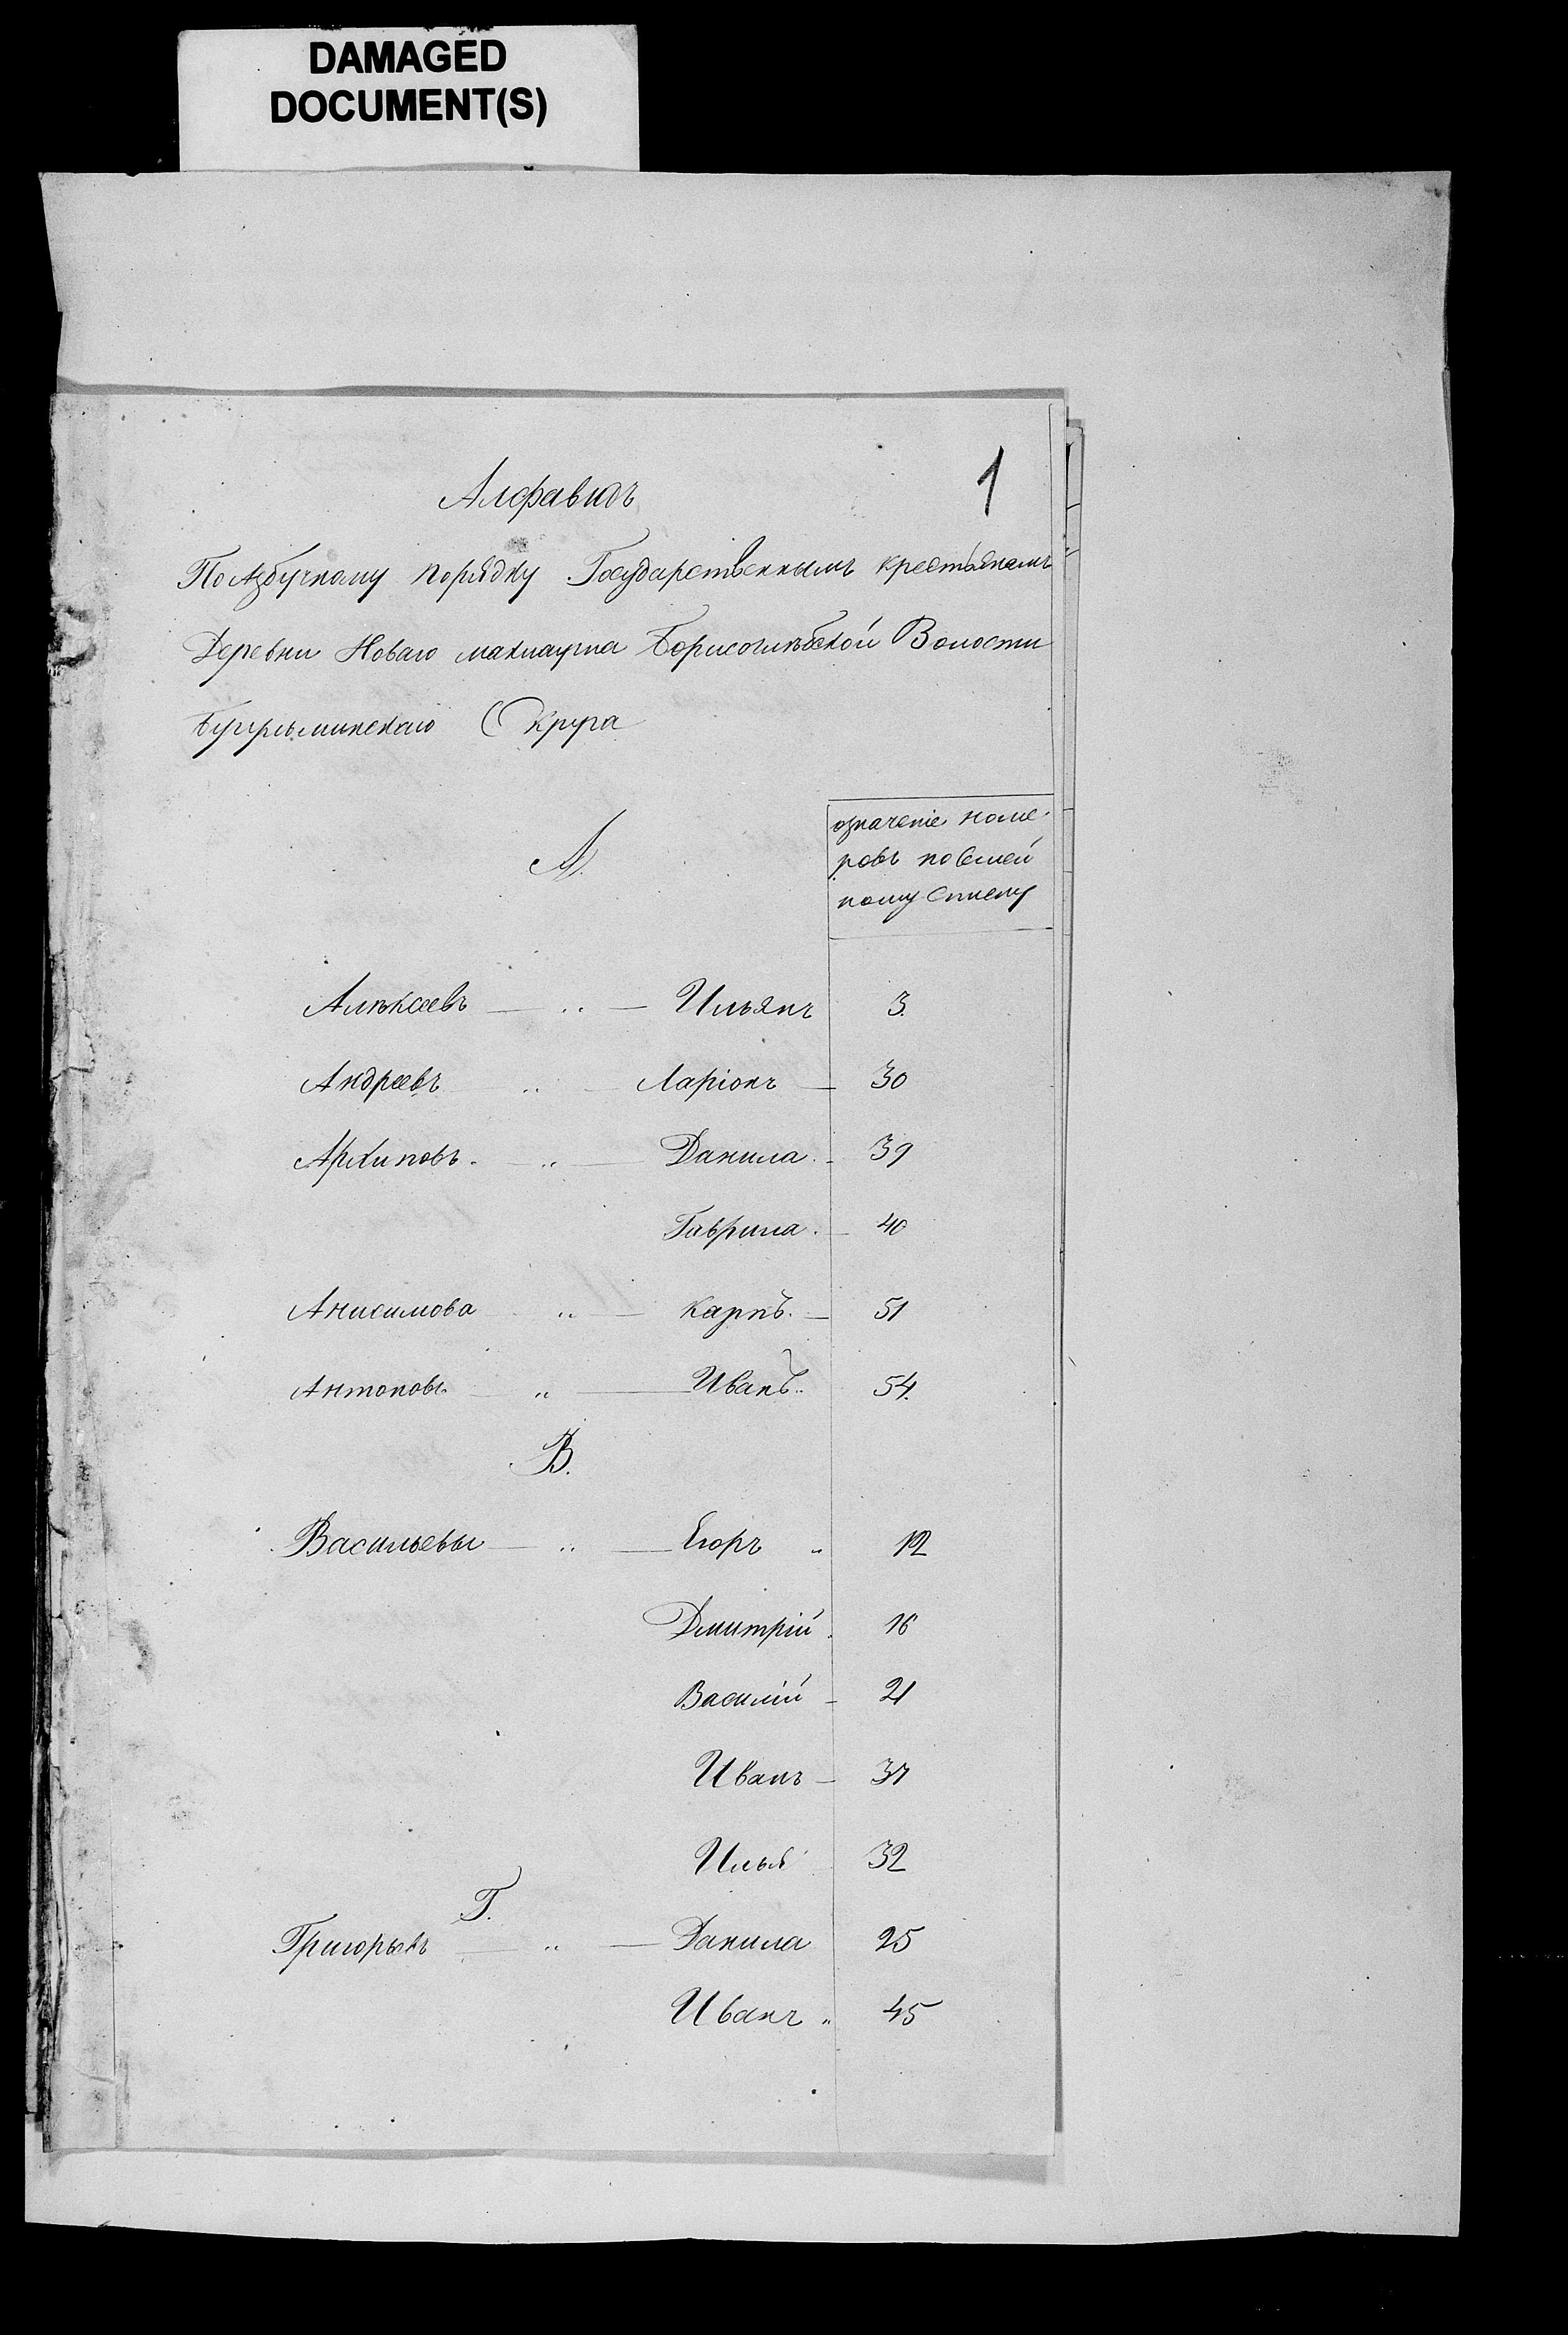 DAMAGED
DOCUMENT(S)
1
Алфавидъ
По Азбучному порядку Государственнымъ крестьянамъ
Деревни Новаго Борисоглѣбской Волости
Бугульминскаго Округа
А.
означеніе номе-
ровъ посемей
ному списку
Алѣксеевъ — „ — Ульянъ 3.
Андреевъ „ — Ларіонъ — 30
Архиповъ. — „ — Данила. - 39
Гаврила. — 40
Анисимова „ — Карпъ. — 51
Антоновъ — „ — Иванъ.. 54.
В.
Васильевы — „ — Егоръ „ 12
Дмитрій. 16
Василій - 21
Иванъ — 37
Илья 32
Г.
Григорьевъ — „ — Данила 25
Иванъ „ 45